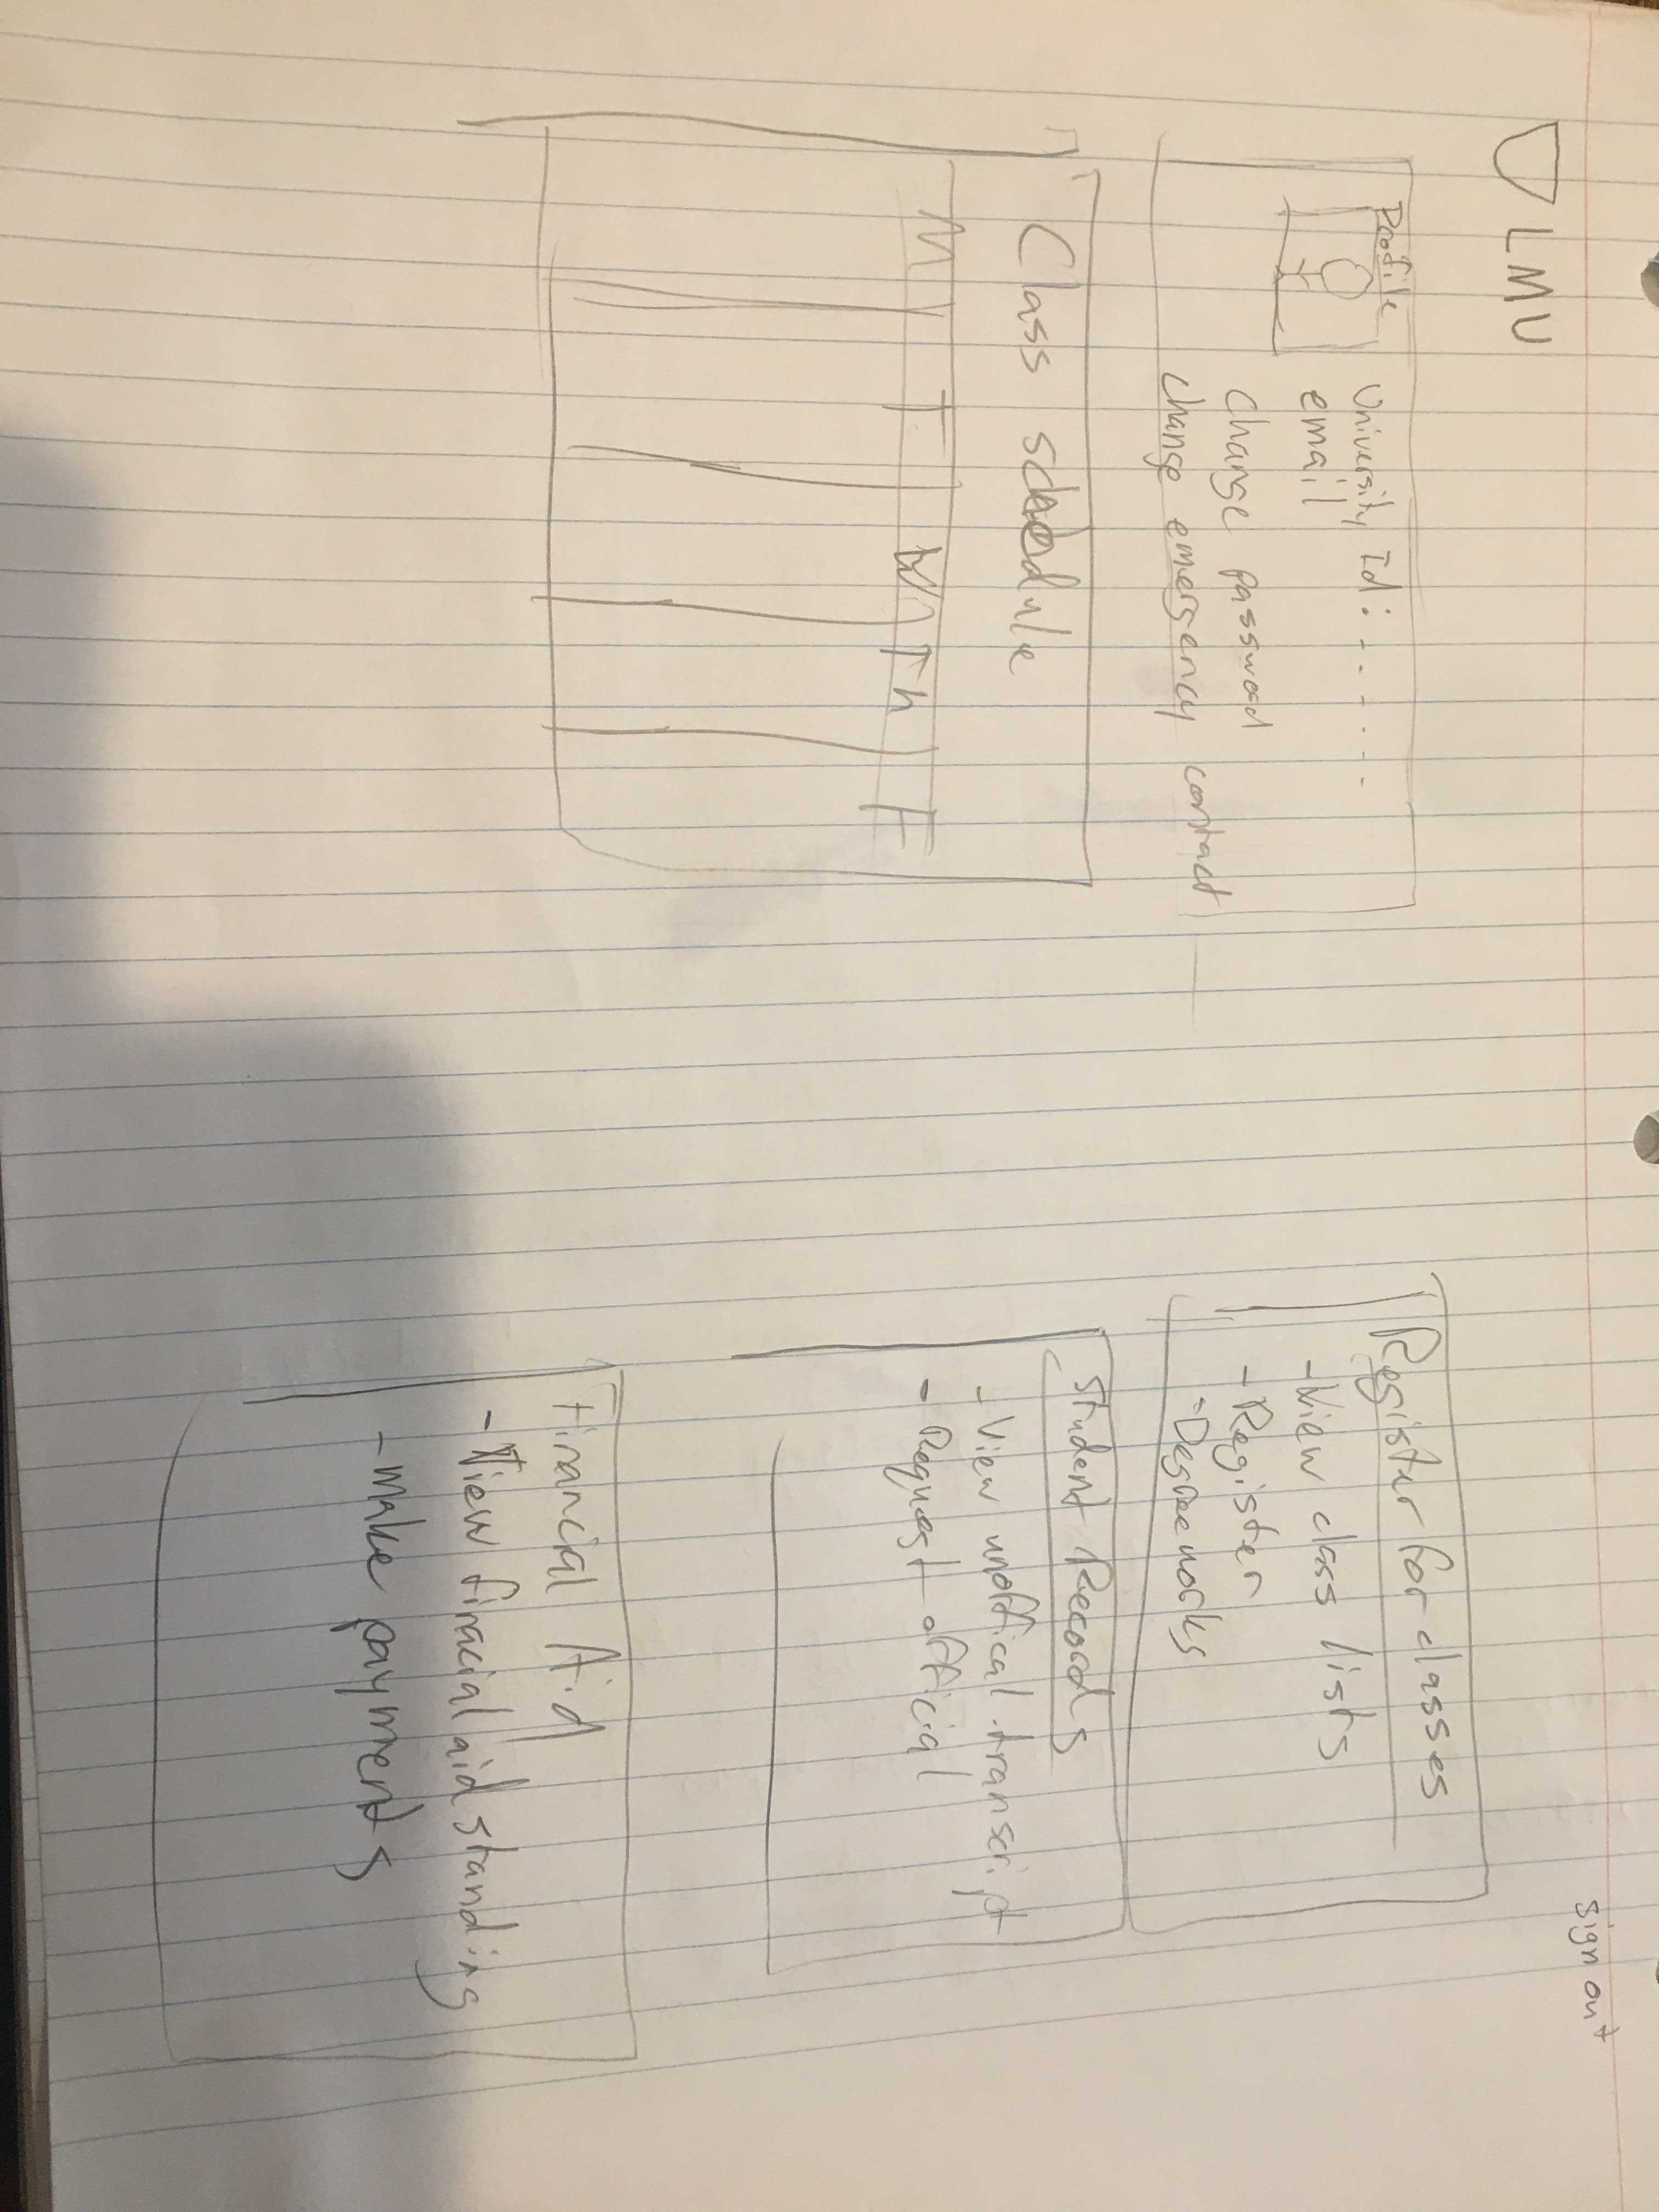 sign out
LMU
Profile
University Id: - - - - - -
email
Change password
change emergency contact
Class schedule
M T W Th F
Register for classes
- View class lists
- Register
- Degreeworks
Student Records
- View unoffical transcript
- Request official
Financial Aid
- View finacial aid standing
- make payments